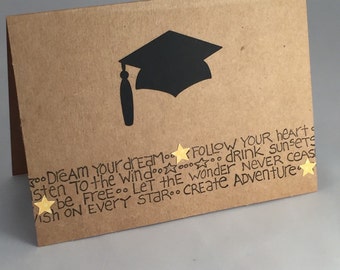 Dream your dream Follow your heart
sten to the wind drink sunsets
be free Let the wonder never ceas
ish on every star create adventure